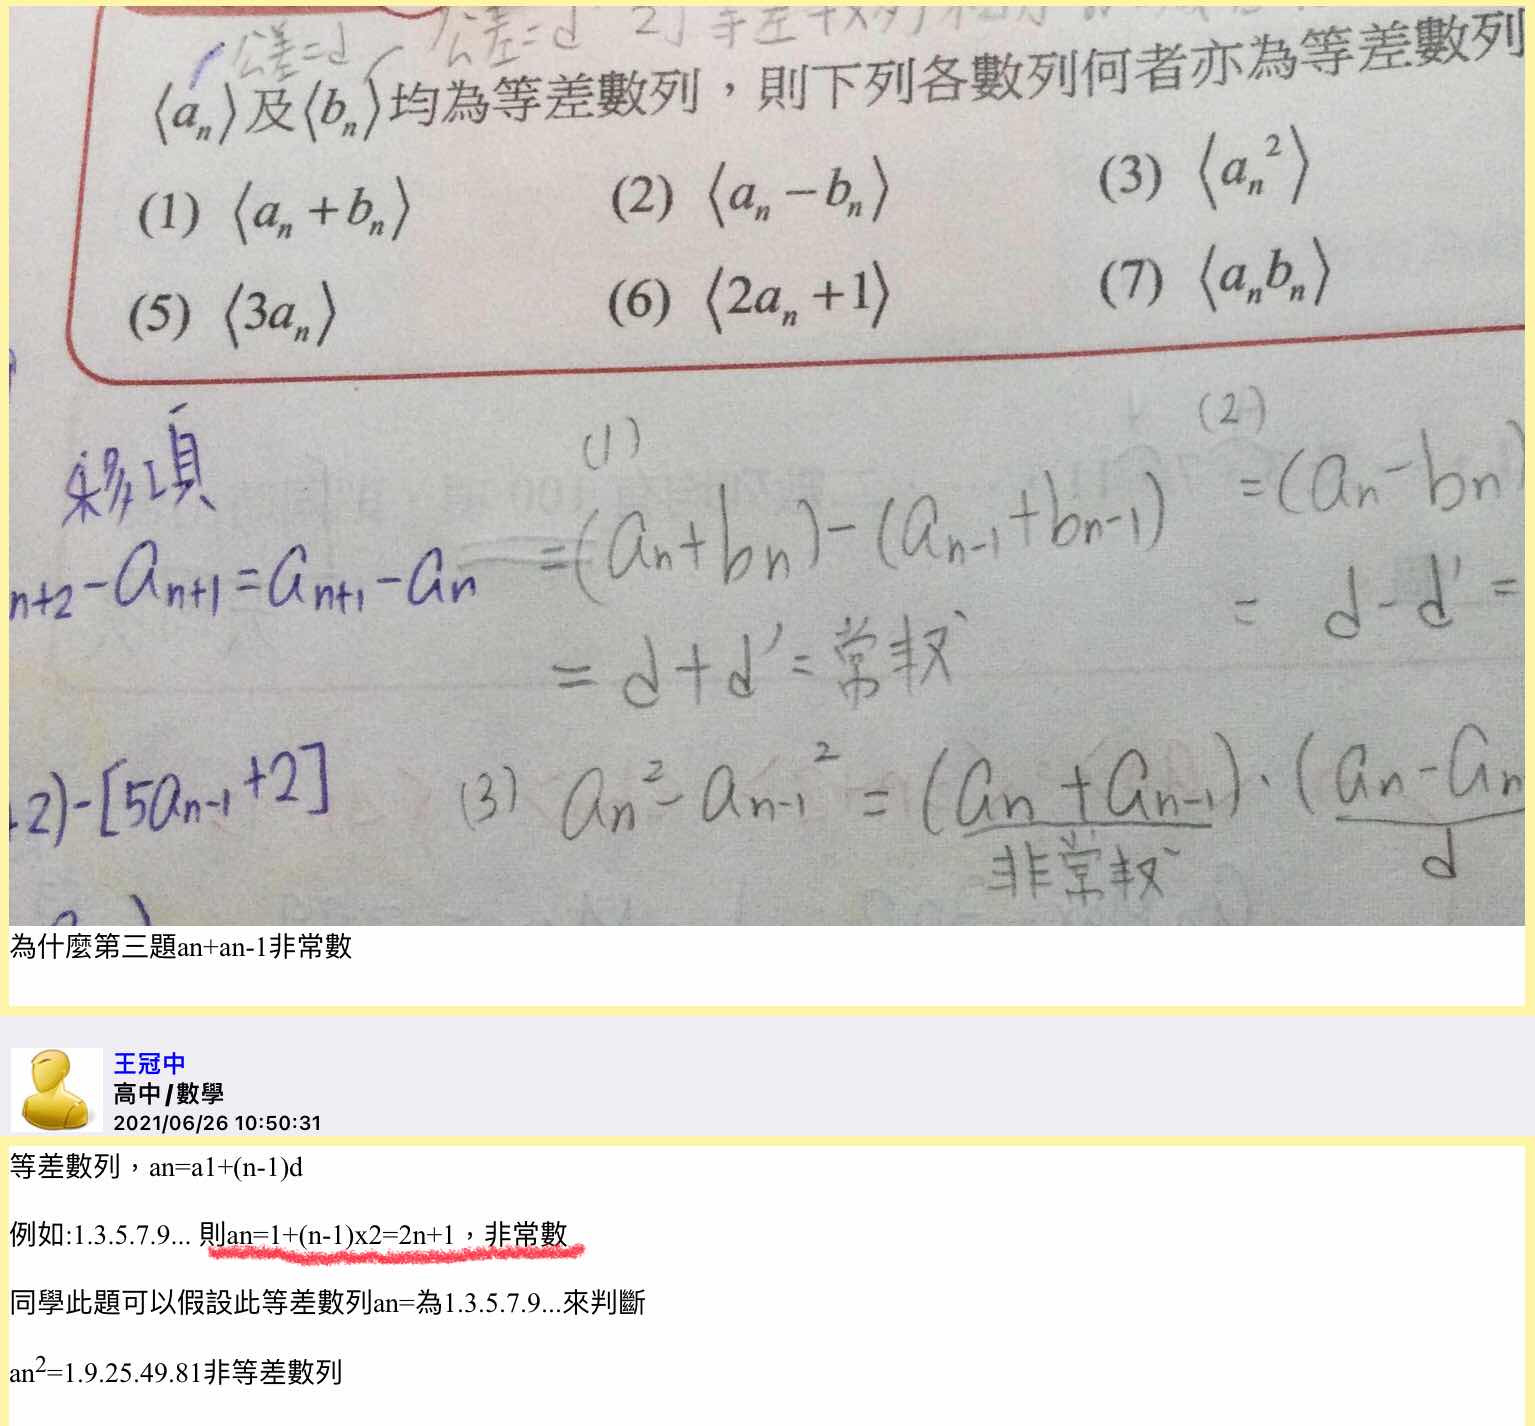 公差=d 公差=d
⟨aₙ⟩及⟨bₙ⟩均為等差數列，則下列各數列何者亦為等差數列
(1) ⟨aₙ+bₙ⟩ (2) ⟨aₙ−bₙ⟩ (3) ⟨aₙ²⟩
(5) ⟨3aₙ⟩ (6) ⟨2aₙ+1⟩ (7) ⟨aₙbₙ⟩
移項
n+2−aₙ₊₁=aₙ₊₁−aₙ
(1)
=(aₙ+bₙ)−(aₙ₋₁+bₙ₋₁)
=d+d'=常数
(2)
=(aₙ−bₙ)
=d−d'=
2)−[5aₙ₋₁+2]
(3) aₙ²−aₙ₋₁²=(aₙ+aₙ₋₁)·(aₙ−aₙ
非常数 d
為什麼第三題an+an-1非常數
王冠中
高中/數學
2021/06/26 10:50:31
等差數列，an=a1+(n-1)d
例如:1.3.5.7.9... 則an=1+(n-1)x2=2n+1，非常數
同學此題可以假設此等差數列an=為1.3.5.7.9...來判斷
an²=1.9.25.49.81非等差數列